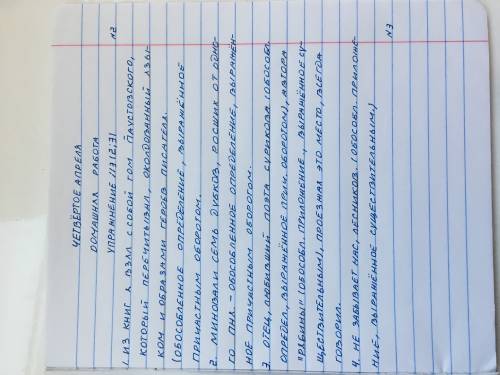 ЧЕТВЁРТОЕ АПРЕЛЯ
ДОМАШНЯЯ РАБОТА
УПРАЖНЕНИЕ 113(2;3)
N2
1. ИЗ КНИГ Я ВЗЯЛ С СОБОЙ ТОМ ПАУСТОВСКОГО,
КОТОРЫЙ ПЕРЕЧИТЫВАЛ, ОКОЛДОВАННЫЙ ЯЗЫ-
КОМ И ОБРАЗАМИ ГЕРОЕВ ПИСАТЕЛЯ.
(ОБОСОБЛЕННОЕ ОПРЕДЕЛЕНИЕ, ВЫРАЖЕННОЕ
ПРИЧАСТНЫМ ОБОРОТОМ.
2. МИНОВАЛИ СЕМЬ ДУБКОВ, РОСШИХ ОТ ОДНО-
ГО ПНЯ. - ОБОСОБЛЕННОЕ ОПРЕДЕЛЕНИЕ, ВЫРАЖЕН-
НОЕ ПРИЧАСТНЫМ ОБОРОТОМ.
3. ОТЕЦ, ЛЮБИВШИЙ ПОЭТА СУРИКОВА (ОБОСОБЛ.
ОПРЕДЕЛ., ВЫРАЖЕННОЕ ПРИЧ. ОБОРОТОМ), АВТОРА
"РЯБИНЫ" (ОБОСОБЛ. ПРИЛОЖЕНИЕ, ВЫРАЖЕННОЕ СУ-
ЩЕСТВИТЕЛЬНЫМ), ПРОЕЗЖАЯ ЭТО МЕСТО, ВСЕГДА
ГОВОРИЛ.
4. НЕ ЗАБЫВАЕТ НАС, ЛЕСНИКОВ. (ОБОСОБЛ. ПРИЛОЖЕ-
НИЕ, ВЫРАЖЕННОЕ СУЩЕСТВИТЕЛЬНЫМ.)
N3